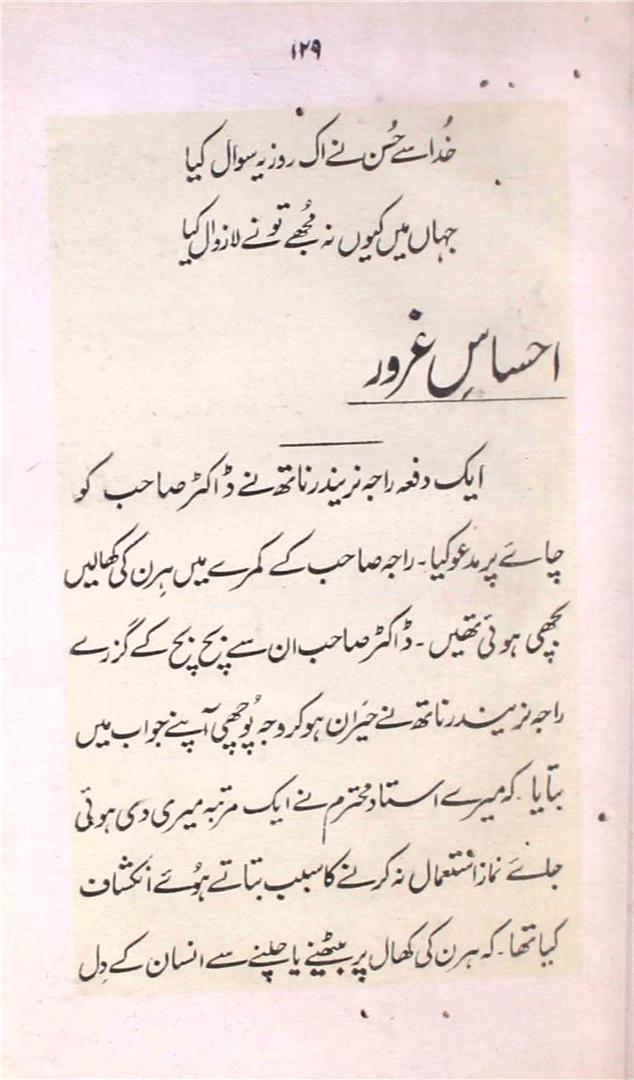 ۱۲۹
خُدا سے حُسن نے اک روز یہ سوال کیا
جہاں میں کیوں نہ مُجھے تو نے لازوال کیا
احساسِ غرور
ایک دفعہ راجہ نریندر ناتھ نے ڈاکٹر صاحب کو
چائے پر مدعو کیا۔ راجہ صاحب کے کمرے میں ہِرن کی کھالیں
بچھی ہوئی تھیں۔ ڈاکٹر صاحب ان سے بچ بچ کے گزرے
راجہ نریندر ناتھ نے حیَران ہو کر وجہ پُوچھی آپنے جواب میں
بتایا۔ کہ میرے استاد محترم نے ایک مرتبہ میری دی ہوئی
جائے نماز استعمال نہ کرنے کا سبب بتاتے ہوُئے انکشاف
کیا تھا۔ کہ ہرن کی کھال پر بیٹھنے یا چلنے سے انسان کے دِل